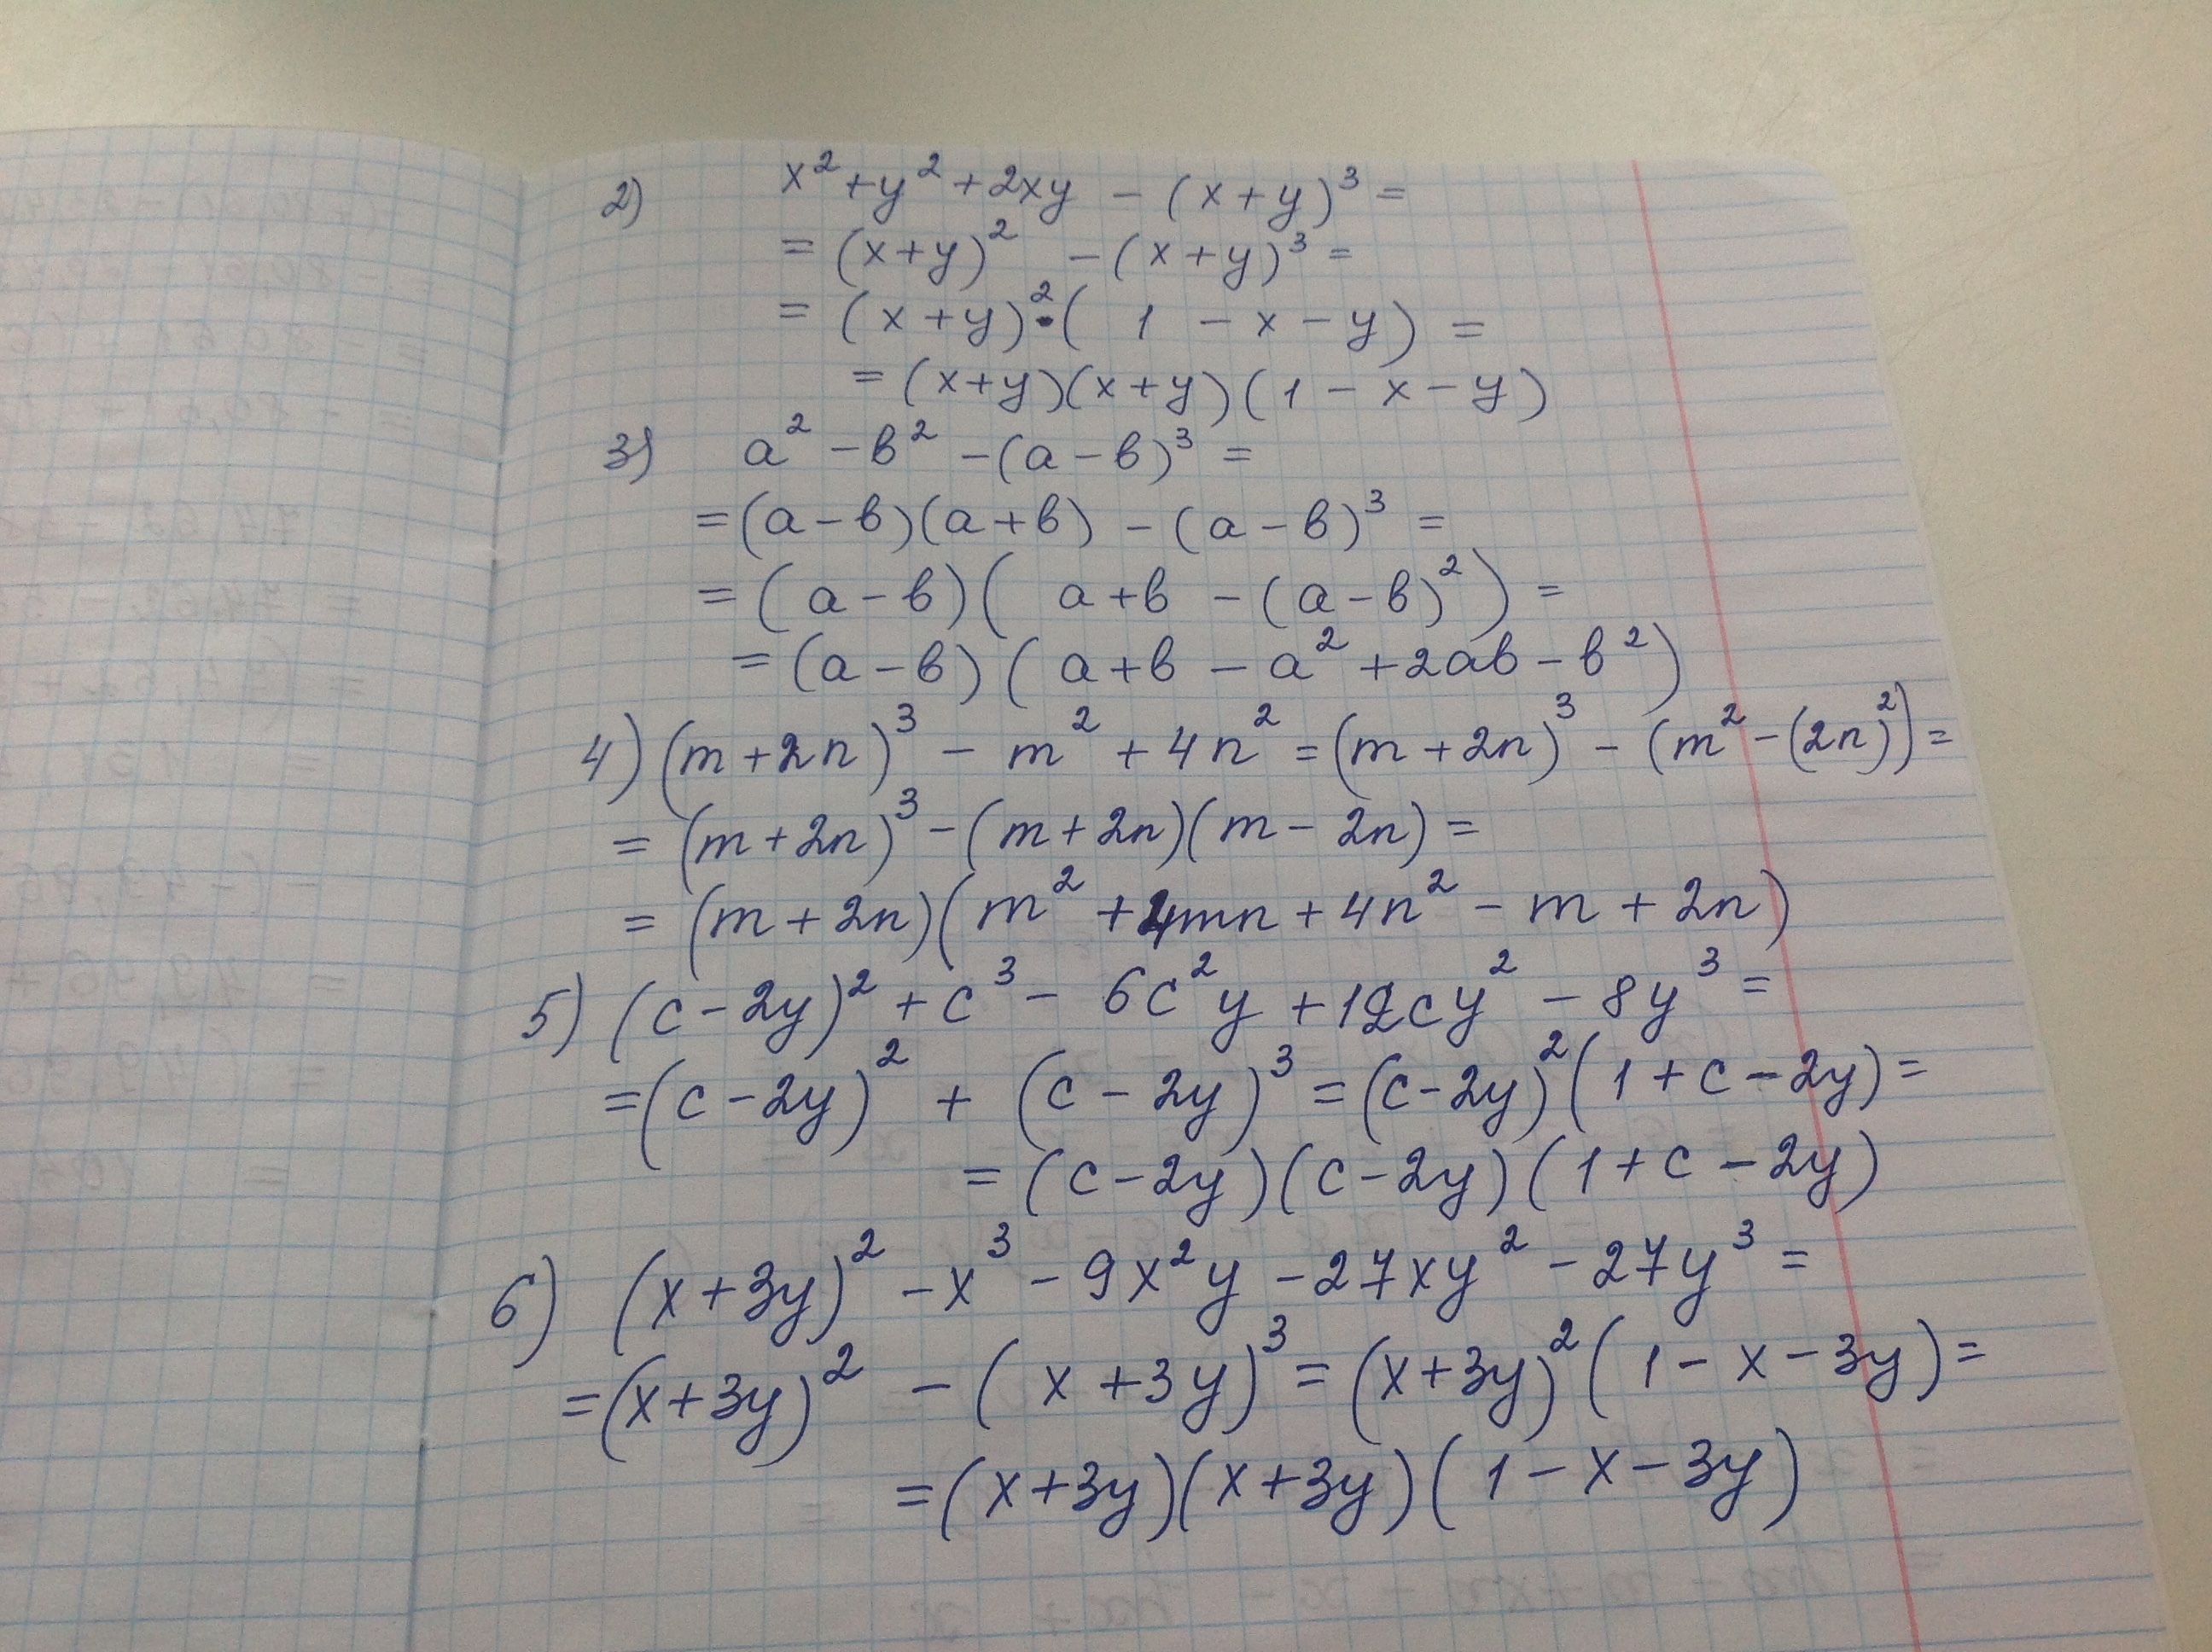 2) x² + y² + 2xy - (x + y)³ =
= (x+y)² - (x + y)³ =
= (x + y)²·( 1 - x - y) =
= (x+y)(x+y)(1 - x - y)
3) a² - в² - (a - в)³ =
= (a - в)(a + в) - (a - в)³ =
= (a - в)( a+в - (a - в)²) =
= (a - в)( a+в - a² + 2aв - в²)
4) (m + 2n)³ - m² + 4n² = (m + 2n)³ - (m² - (2n)²) =
= (m + 2n)³ - (m + 2n)(m - 2n) =
= (m + 2n)(m² + 4mn + 4n² - m + 2n)
5) (c - 2y)² + c³ - 6c²y + 12cy² - 8y³ =
= (c - 2y)² + (c - 2y)³ = (c - 2y)²(1 + c - 2y) =
= (c - 2y)(c - 2y)(1 + c - 2y)
6) (x + 3y)² - x³ - 9x²y - 27xy² - 27y³ =
= (x+3y)² - ( x + 3y)³ = (x+3y)²( 1 - x - 3y) =
= (x+3y)(x+3y)(1 - x - 3y)